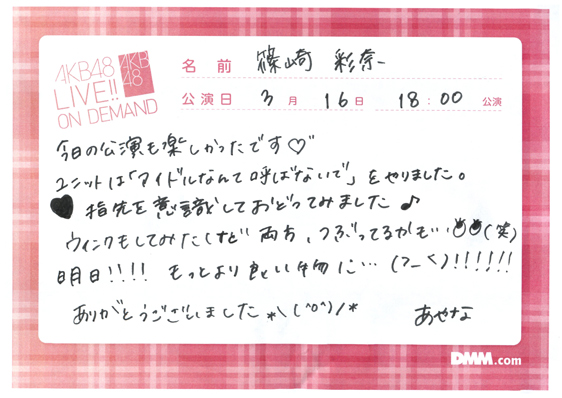 AKB48
LIVE!!
ON DEMAND
AKB
48
名前 篠崎 彩奈
公演日 3月 16日 18:00 公演
今日の公演も楽しかったです♡
ユニットは「アイドルなんて呼ばないで」をやりました。
♥ 指先を意識しておどってみました♪
ウィンクもしてみたけど 両方、つぶってるかも…(笑)
明日!!!! もっとより良い物に…(>_<)!!!!!!
ありがとうございました *\(^o^)/*
あやな
DMM.com